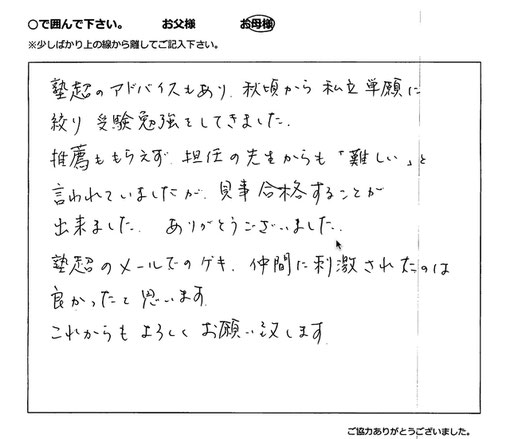 ○で囲んで下さい。　お父様　お母様
※少しばかり上の線から離してご記入下さい。
塾超のアドバイスもあり、秋頃から私立単願に
絞り受験勉強をしてきました。
推薦ももらえず、担任の先生からも「難しい」と
言われていましたが、見事合格することが
出来ました。ありがとうございました。
塾超のメールでのゲキ、仲間に刺激されたのは
良かったと思います。
これからもよろしくお願い致します
ご協力ありがとうございました。